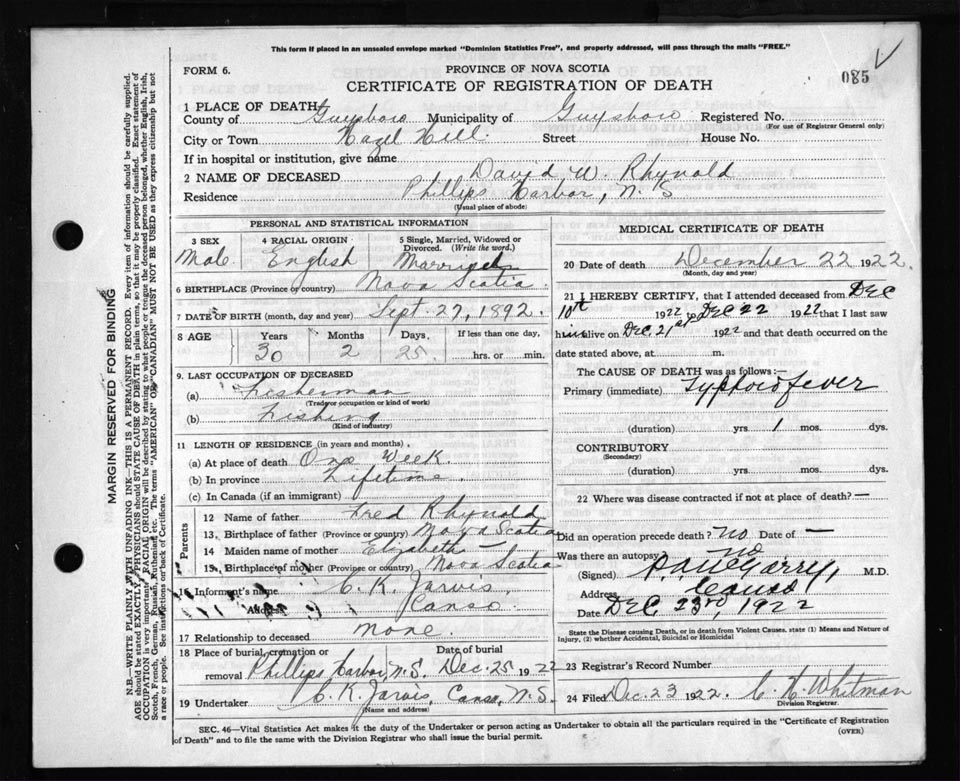 This form if placed in an unsealed envelope marked "Dominion Statistics Free", and properly addressed, will pass through the mails "FREE."
FORM 6.
PROVINCE OF NOVA SCOTIA
CERTIFICATE OF REGISTRATION OF DEATH
085
1 PLACE OF DEATH
County of Guysboro Municipality of Guysboro Registered No.
(For use of Registrar General only)
City or Town Hazel Hill. Street House No.
If in hospital or institution, give name
2 NAME OF DECEASED David W. Rhynold
Residence Phillips Harbor, N. S
(Usual place of abode)
PERSONAL AND STATISTICAL INFORMATION
3 SEX 4 RACIAL ORIGIN 5 Single, Married, Widowed or Divorced. (Write the word.)
Male English Married
6 BIRTHPLACE (Province or country) Nova Scotia
7 DATE OF BIRTH (month, day and year) Sept. 27, 1892.
8 AGE Years Months Days. If less than one day,
30 2 25 hrs. or min.
9. LAST OCCUPATION OF DECEASED
(a) Fisherman
(Trade or occupation or kind of work)
(b) Fishing
(Kind of industry)
11 LENGTH OF RESIDENCE (in years and months)
(a) At place of death One Week.
(b) In province Lifetime.
(c) In Canada (if an immigrant)
Parents
12 Name of father Fred Rhynold
13. Birthplace of father (Province or country) Nova Scotia
14 Maiden name of mother Elizabeth —
15 Birthplace of mother (Province or country) Nova Scotia
16 Informant's name C. K. Jarvis,
Address Canso.
17 Relationship to deceased none.
18 Place of burial, cremation or removal Phillips Harbor, N.S. Date of burial Dec. 25 1922
19 Undertaker C. K. Jarvis, Canso, N.S.
(Name and address)
MEDICAL CERTIFICATE OF DEATH
20 Date of death December 22 1922.
(Month, day and year)
21 I HEREBY CERTIFY, that I attended deceased from Dec
10th 1922 to Dec 22 1922 that I last saw
him alive on Dec. 21st 1922 and that death occurred on the
date stated above, at m.
The CAUSE OF DEATH was as follows:—
Primary (immediate) Typhoid fever
(duration) yrs. 1 mos. dys.
CONTRIBUTORY
(Secondary)
(duration) yrs. mos. dys.
22 Where was disease contracted if not at place of death? —
Did an operation precede death? no Date of —
Was there an autopsy no
(Signed) M.D.
Address Canso
Date Dec. 23rd, 1922
State the Disease causing Death, or in death from Violent Causes, state (1) Means and Nature of Injury, (2) whether Accidental, Suicidal or Homicidal
23 Registrar's Record Number
24 Filed Dec. 23 1922. C. H. Whitman
Division Registrar.
SEC. 46—Vital Statistics Act makes it the duty of the Undertaker or person acting as Undertaker to obtain all the particulars required in the "Certificate of Registration
of Death" and to file the same with the Division Registrar who shall issue the burial permit.
(OVER)
MARGIN RESERVED FOR BINDING
N.B.—WRITE PLAINLY WITH UNFADING INK—THIS IS A PERMANENT RECORD. Every item of information should be carefully supplied.
AGE should be stated EXACTLY. PHYSICIANS should STATE CAUSE OF DEATH in plain terms, so that it may be properly classified. Exact statement of
OCCUPATION is very important. RACIAL ORIGIN will be described by stating to what people or tongue the deceased person belonged, whether English, Irish,
Scotch, French, German, Russian, Ruthenian, etc. The terms "AMERICAN" OR "CANADIAN" MUST NOT BE USED as they express citizenship but not
a race or people. See instructions on back of Certificate.